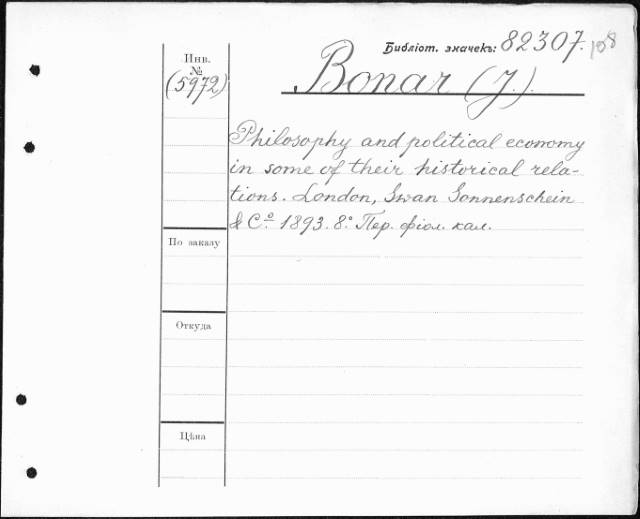 Библіот. значекъ: 82307. 158
Инв.
№
(5972)
Bonar (J.).
Philosophy and political economy
in some of their historical rela-
tions. London, Swan Sonnenschein
& Cº. 1893. 8.º Пер. фіол. кал.
По заказу
Откуда
Цѣна